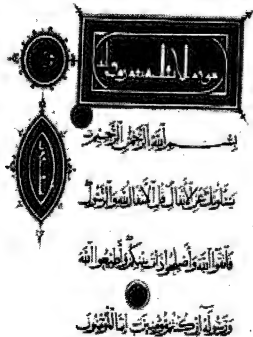 بسم الله الرحمن الرحيم
يسألونك عن الأنفال قل الأنفال لله والرسول
فاتقوا الله وأصلحوا ذات بينكم وأطيعوا الله
ورسوله إن كنتم مؤمنين إنما المؤمنون